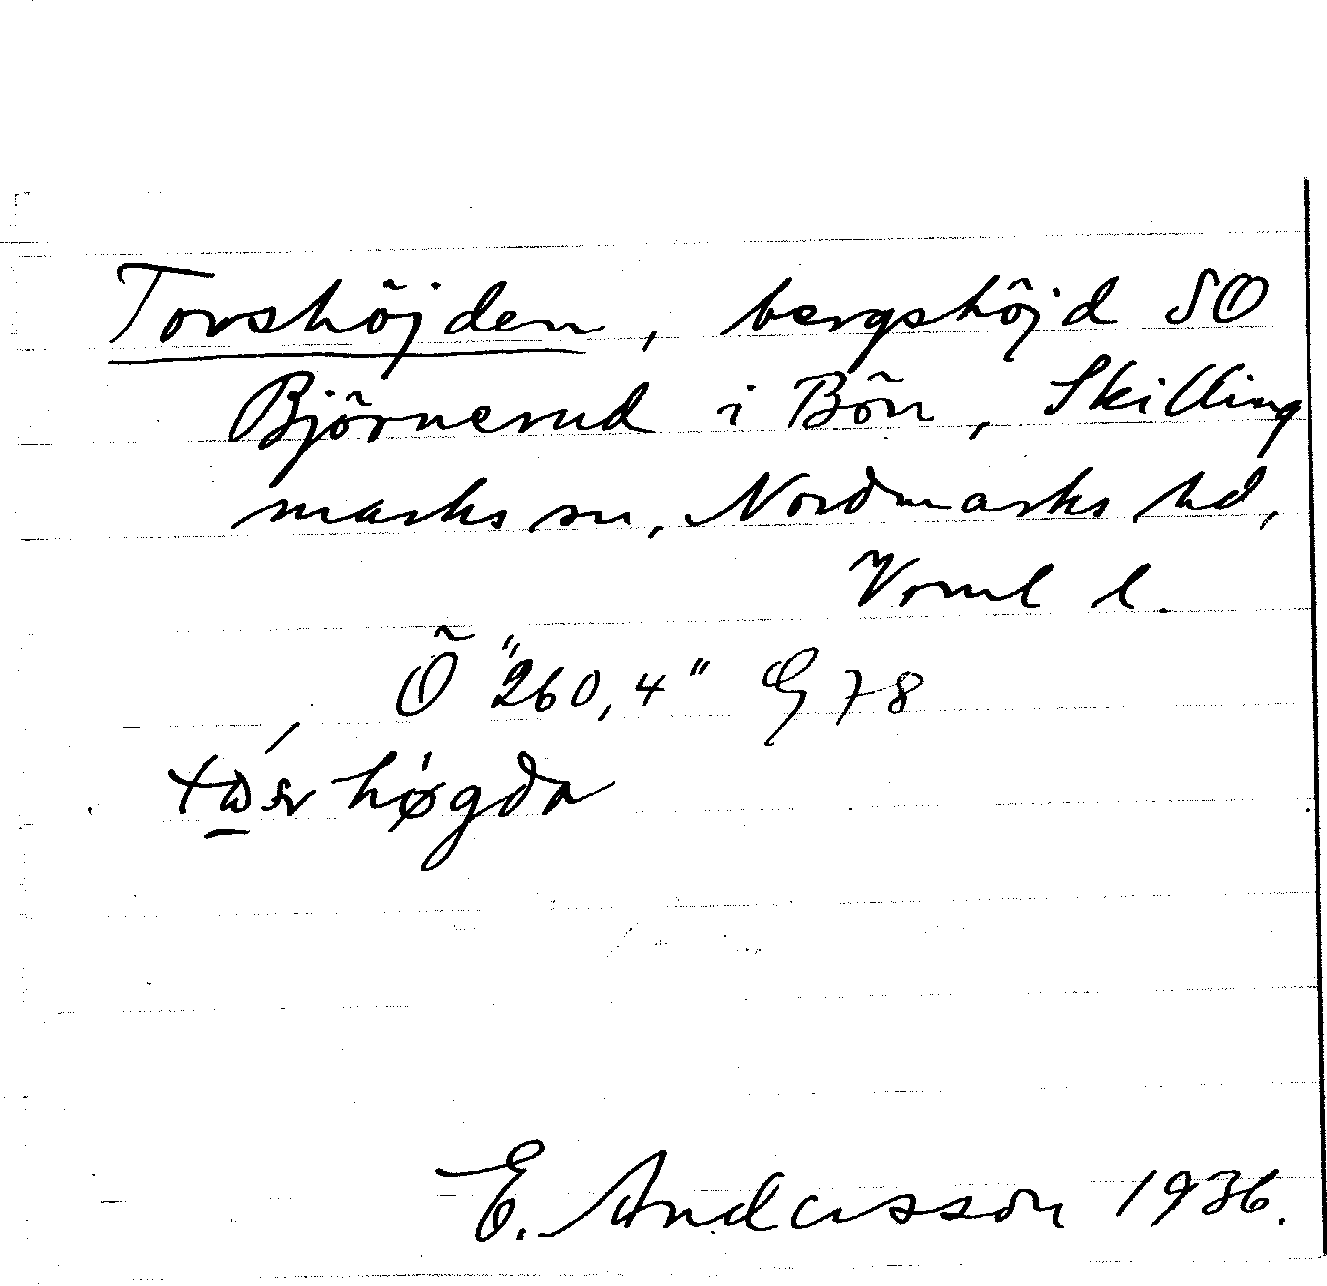 Torshöjden, bergshöjd SO
Björnerud i Bön, Skilling
marks sn, Nordmarks hd,
Verml l.
Ö "260,4" G 78
høgda
E. Andersson 1936.